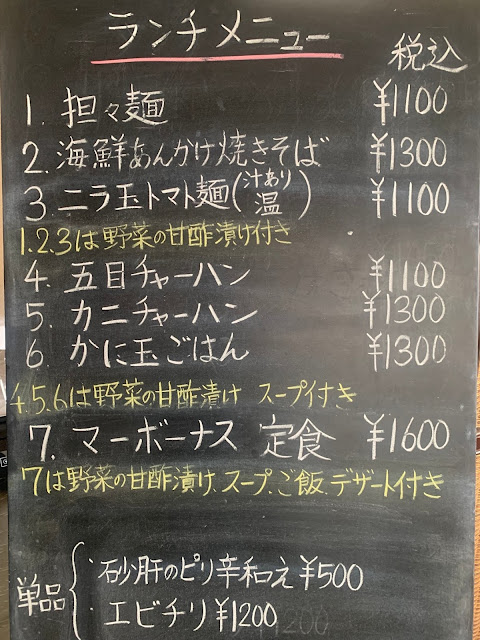 ランチメニュー
税込
1. 担々麺 ¥1100
2. 海鮮あんかけ焼きそば ¥1300
3 ニラ玉トマト麺(汁あり温) ¥1100
1.2.3は野菜の甘酢漬け付き
4. 五目チャーハン ¥1100
5. カニチャーハン ¥1300
6 かに玉ごはん ¥1300
4.5.6は野菜の甘酢漬け スープ付き
7. マーボーナス 定食 ¥1600
7は野菜の甘酢漬け、スープ、ご飯、デザート付き
単品
・砂肝のピリ辛和え¥500
・エビチリ¥1200